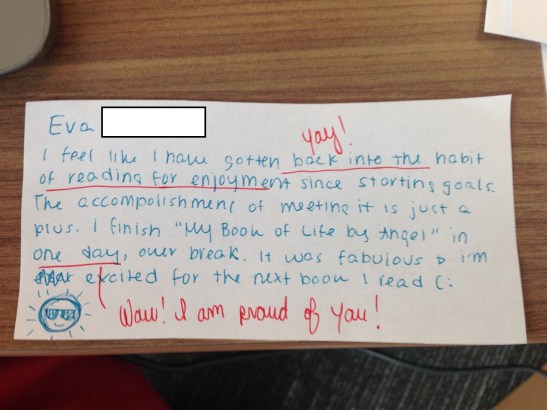 Eva
yay!
I feel like I have gotten back into the habit
of reading for enjoyment since starting goals.
The accomplishment of meeting it is just a
plus. I finish "My Book of Life by Angel" in
one day, over break. It was fabulous & i'm
excited for the next book I read (:
Wow! I am proud of you!